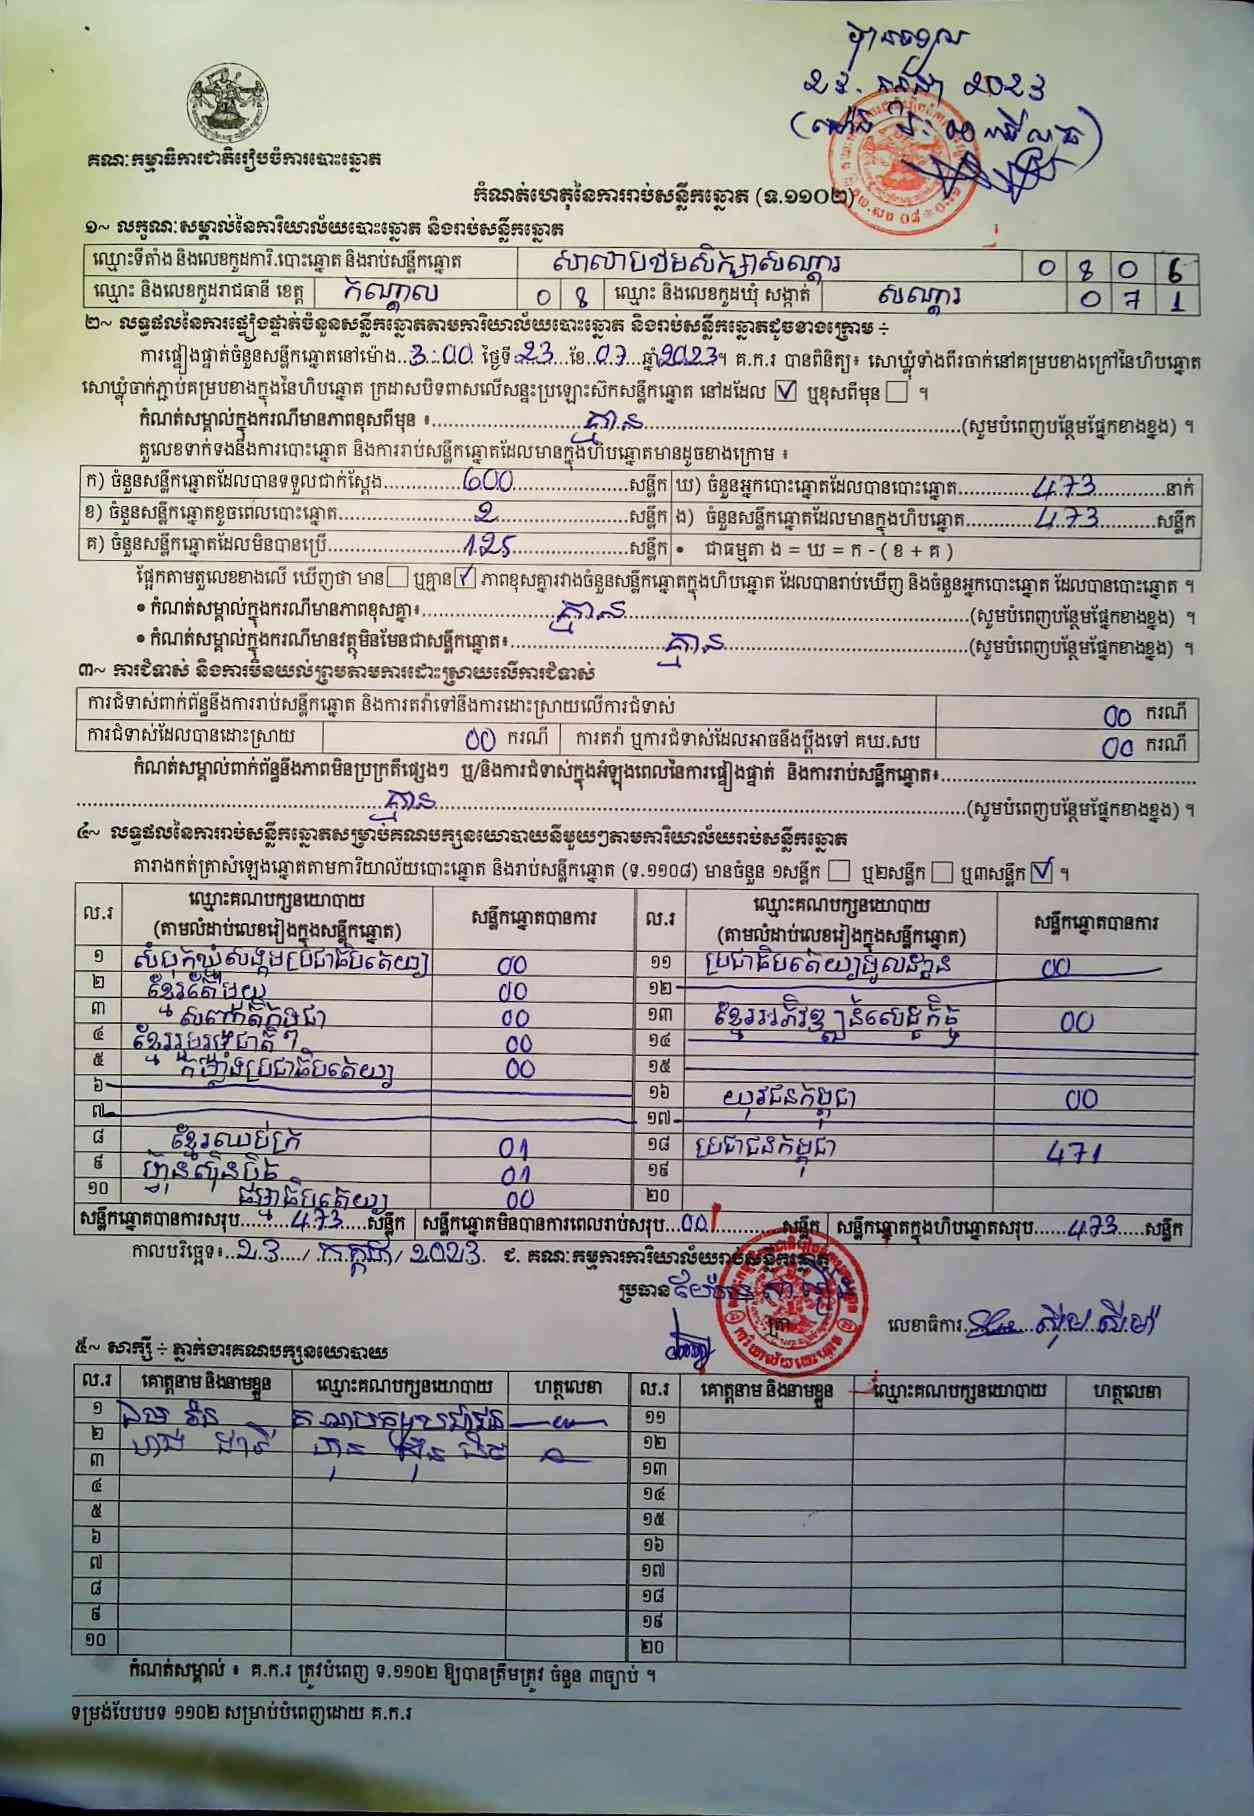 បានទទួល
២៤. កក្កដា 2023
គណៈកម្មាធិការជាតិរៀបចំការបោះឆ្នោត
កំណត់ហេតុនៃការរាប់សន្លឹកឆ្នោត (ទ.១១០២)
១~ លក្ខណៈសម្គាល់នៃការិយាល័យបោះឆ្នោត និងរាប់សន្លឹកឆ្នោត
ឈ្មោះទីតាំង និងលេខកូដការិ.បោះឆ្នោត និងរាប់សន្លឹកឆ្នោត សាលាបឋមសិក្សាសណ្ដារ 0 8 0 6
ឈ្មោះ និងលេខកូដរាជធានី ខេត្ត កណ្ដាល 0 8 ឈ្មោះ និងលេខកូដឃុំ សង្កាត់ សណ្ដារ 0 7 1
២~ លទ្ធផលនៃការផ្ទៀងផ្ទាត់ចំនួនសន្លឹកឆ្នោតតាមការិយាល័យបោះឆ្នោត និងរាប់សន្លឹកឆ្នោតដូចខាងក្រោម ÷
ការផ្ទៀងផ្ទាត់ចំនួនសន្លឹកឆ្នោតនៅម៉ោង..3:00 ថ្ងៃទី..23..ខែ..07..ឆ្នាំ2023។ គ.ក.រ បានពិនិត្យ៖ សោឃ្លុំទាំងពីរចាក់នៅគម្របខាងក្រៅនៃហិបឆ្នោត
សោឃ្លុំចាក់ភ្ជាប់គម្របខាងក្នុងនៃហិបឆ្នោត ក្រដាសបិទពាសលើសន្ទះប្រឡោះស៊កសន្លឹកឆ្នោត នៅដដែល ☑ ឬខុសពីមុន ☐ ។
កំណត់សម្គាល់ក្នុងករណីមានភាពខុសពីមុន ៖....គ្មាន....(សូមបំពេញបន្ថែមផ្នែកខាងខ្នង) ។
តួលេខទាក់ទងនឹងការបោះឆ្នោត និងការរាប់សន្លឹកឆ្នោតដែលមានក្នុងហិបឆ្នោតមានដូចខាងក្រោម ៖
ក) ចំនួនសន្លឹកឆ្នោតដែលបានទទួលជាក់ស្ដែង....600....សន្លឹក ឃ) ចំនួនអ្នកបោះឆ្នោតដែលបានបោះឆ្នោត....473....នាក់
ខ) ចំនួនសន្លឹកឆ្នោតខូចពេលបោះឆ្នោត....2....សន្លឹក ង) ចំនួនសន្លឹកឆ្នោតដែលមានក្នុងហិបឆ្នោត....473....សន្លឹក
គ) ចំនួនសន្លឹកឆ្នោតដែលមិនបានប្រើ....125....សន្លឹក • ជាធម្មតា ង = ឃ = ក - ( ខ + គ )
ផ្អែកតាមតួលេខខាងលើ ឃើញថា មាន ☐ ឬគ្មាន ☑ ភាពខុសគ្នារវាងចំនួនសន្លឹកឆ្នោតក្នុងហិបឆ្នោត ដែលបានរាប់ឃើញ និងចំនួនអ្នកបោះឆ្នោត ដែលបានបោះឆ្នោត ។
• កំណត់សម្គាល់ក្នុងករណីមានភាពខុសគ្នា៖....គ្មាន....(សូមបំពេញបន្ថែមផ្នែកខាងខ្នង) ។
• កំណត់សម្គាល់ក្នុងករណីមានវត្ថុមិនមែនជាសន្លឹកឆ្នោត៖....គ្មាន....(សូមបំពេញបន្ថែមផ្នែកខាងខ្នង) ។
៣~ ការជំទាស់ និងការមិនយល់ព្រមតាមការដោះស្រាយលើការជំទាស់
ការជំទាស់ពាក់ព័ន្ធនឹងការរាប់សន្លឹកឆ្នោត និងការតវ៉ាទៅនឹងការដោះស្រាយលើការជំទាស់ 00 ករណី
ការជំទាស់ដែលបានដោះស្រាយ 00 ករណី ការតវ៉ា ឬការជំទាស់ដែលអាចនឹងប្ដឹងទៅ គឃ.សប 00 ករណី
កំណត់សម្គាល់ពាក់ព័ន្ធនឹងភាពមិនប្រក្រតីផ្សេងៗ ឬ/និងការជំទាស់ក្នុងអំឡុងពេលនៃការផ្ទៀងផ្ទាត់ និងការរាប់សន្លឹកឆ្នោត៖....
....គ្មាន....(សូមបំពេញបន្ថែមផ្នែកខាងខ្នង) ។
៤~ លទ្ធផលនៃការរាប់សន្លឹកឆ្នោតសម្រាប់គណបក្សនយោបាយនីមួយៗតាមការិយាល័យរាប់សន្លឹកឆ្នោត
តារាងកត់ត្រាសំឡេងឆ្នោតតាមការិយាល័យបោះឆ្នោត និងរាប់សន្លឹកឆ្នោត (ទ.១១០៨) មានចំនួន ១សន្លឹក ☐ ឬ២សន្លឹក ☐ ឬ៣សន្លឹក ☑ ។
ល.រ ឈ្មោះគណបក្សនយោបាយ (តាមលំដាប់លេខរៀងក្នុងសន្លឹកឆ្នោត) សន្លឹកឆ្នោតបានការ ល.រ ឈ្មោះគណបក្សនយោបាយ (តាមលំដាប់លេខរៀងក្នុងសន្លឹកឆ្នោត) សន្លឹកឆ្នោតបានការ
១ សំបុកឃ្មុំសង្គមប្រជាធិបតេយ្យ 00 ១១ ប្រជាធិបតេយ្យមូលដ្ឋាន 00
២ ខ្មែរតែមួយ 00 ១២
៣ សញ្ជាតិកម្ពុជា 00 ១៣ ខ្មែរអភិវឌ្ឍន៍សេដ្ឋកិច្ច 00
៤ ខ្មែររួបរួមជាតិ 00 ១៤
៥ កម្លាំងប្រជាធិបតេយ្យ 00 ១៥
៦ ១៦ យុវជនកម្ពុជា 00
៧ ១៧
៨ ខ្មែរឈប់ក្រ 01 ១៨ ប្រជាជនកម្ពុជា 471
៩ ហ៊្វុនស៊ិនប៉ិច 01 ១៩
១០ ធម្មាធិបតេយ្យ 00 ២០
សន្លឹកឆ្នោតបានការសរុប....473....សន្លឹក សន្លឹកឆ្នោតមិនបានការពេលរាប់សរុប...00....សន្លឹក សន្លឹកឆ្នោតក្នុងហិបឆ្នោតសរុប....473....សន្លឹក
កាលបរិច្ឆេទ៖..23../ កក្កដា / 2023. ជ. គណៈកម្មការការិយាល័យរាប់សន្លឹកឆ្នោត
ប្រធាន
លេខាធិការ.... ស៊ុម ស៊ីម៉ា
៥~ សាក្សី ÷ ភ្នាក់ងារគណបក្សនយោបាយ
ល.រ គោត្តនាម និងនាមខ្លួន ឈ្មោះគណបក្សនយោបាយ ហត្ថលេខា ល.រ គោត្តនាម និងនាមខ្លួន ឈ្មោះគណបក្សនយោបាយ ហត្ថលេខា
១ ១១
២ ១២
៣ ១៣
៤ ១៤
៥ ១៥
៦ ១៦
៧ ១៧
៨ ១៨
៩ ១៩
១០ ២០
កំណត់សម្គាល់ ៖ គ.ក.រ ត្រូវបំពេញ ទ.១១០២ ឱ្យបានត្រឹមត្រូវ ចំនួន ៣ច្បាប់ ។
ទម្រង់បែបបទ ១១០២ សម្រាប់បំពេញដោយ គ.ក.រ